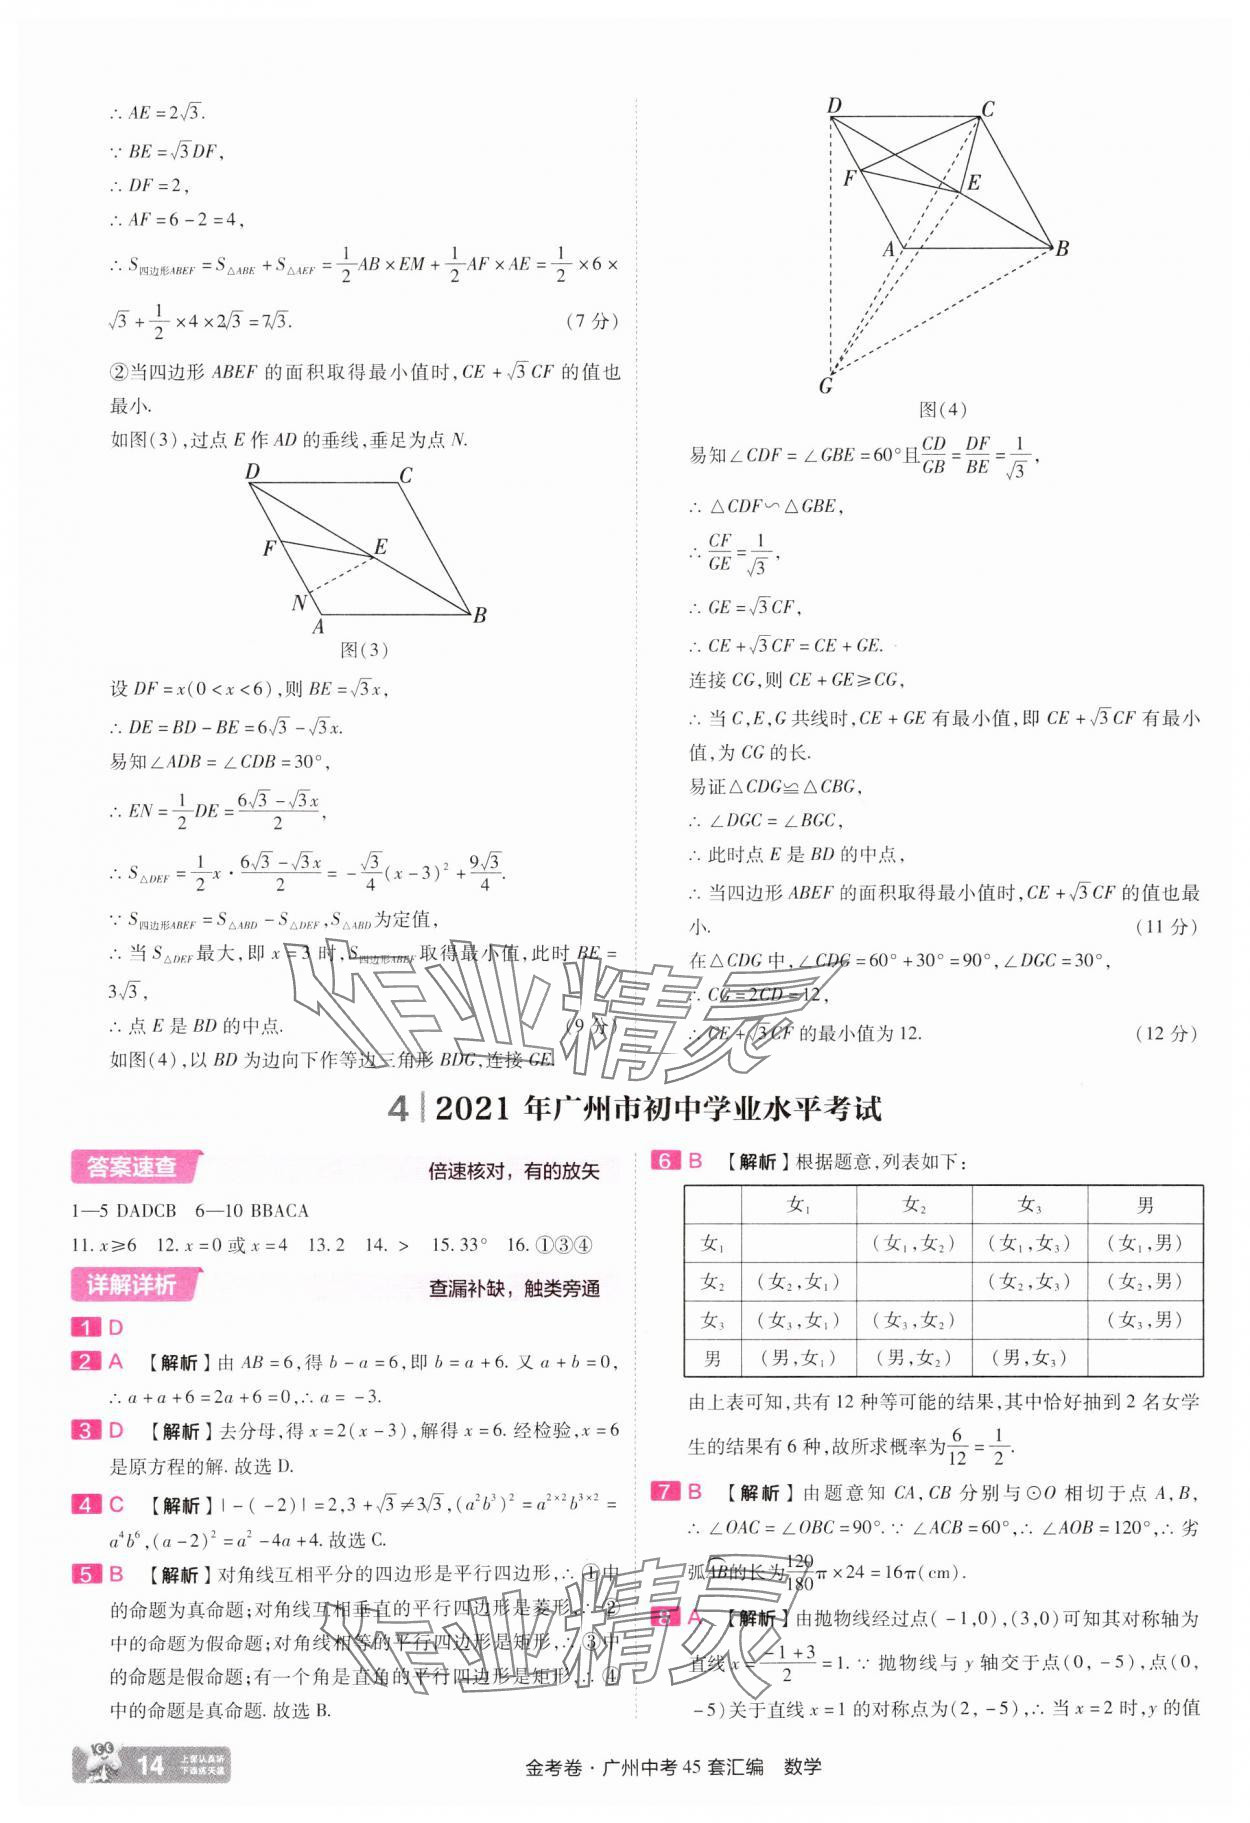 ∴ AE=2√3.
∵ BE=√3DF,
∴ DF=2,
∴ AF=6-2=4,
∴ S四边形ABEF=S△ABE+S△AEF=1/2AB×EM+1/2AF×AE=1/2×6×
√3+1/2×4×2√3=7√3. (7分)
②当四边形ABEF的面积取得最小值时,CE+√3CF的值也
最小.
如图(3),过点E作AD的垂线,垂足为点N.
D C
F E
N
A B
图(3)
设DF=x(0<x<6),则BE=√3x,
∴ DE=BD-BE=6√3-√3x.
易知∠ADB=∠CDB=30°,
∴ EN=1/2DE=(6√3-√3x)/2,
∴ S△DEF=1/2x·(6√3-√3x)/2=-√3/4(x-3)²+9√3/4.
∵ S四边形ABEF=S△ABD-S△DEF,S△ABD为定值,
∴ 当S△DEF最大,即x=3时,S四边形ABEF取得最小值,此时BE=
3√3,
∴ 点E是BD的中点. (9分)
如图(4),以BD为边向下作等边三角形BDG,连接GE.
D C
F E
A B
G
图(4)
易知∠CDF=∠GBE=60°且CD/GB=DF/BE=1/√3,
∴ △CDF∽△GBE,
∴ CF/GE=1/√3,
∴ GE=√3CF,
∴ CE+√3CF=CE+GE.
连接CG,则CE+GE≥CG,
∴ 当C,E,G共线时,CE+GE有最小值,即CE+√3CF有最小
值,为CG的长.
易证△CDG≌△CBG,
∴ ∠DGC=∠BGC,
∴ 此时点E是BD的中点,
∴ 当四边形ABEF的面积取得最小值时,CE+√3CF的值也最
小. (11分)
在△CDG中,∠CDG=60°+30°=90°,∠DGC=30°,
∴ CG=2CD=12,
∴ CE+√3CF的最小值为12. (12分)
作业精灵
4 2021年广州市初中学业水平考试
答案速查 倍速核对，有的放矢
1—5 DADCB 6—10 BBACA
11. x≥6 12. x=0或x=4 13. 2 14. > 15. 33° 16. ①③④
详解详析 查漏补缺，触类旁通
1 D
2 A 【解析】由AB=6,得b-a=6,即b=a+6.又a+b=0,
∴ a+a+6=2a+6=0,∴ a=-3.
3 D 【解析】去分母,得x=2(x-3),解得x=6.经检验,x=6
是原方程的解.故选D.
4 C 【解析】|-(-2)|=2,3+√3≠3√3,(a²b³)²=a²ˣ²b³ˣ²=
a⁴b⁶,(a-2)²=a²-4a+4.故选C.
5 B 【解析】对角线互相平分的四边形是平行四边形,∴ ①中
的命题为真命题;对角线互相垂直的平行四边形是菱形,∴ ②
中的命题为假命题;对角线相等的平行四边形是矩形,∴ ③中
的命题是假命题;有一个角是直角的平行四边形是矩形,∴ ④
中的命题是真命题.故选B.
6 B 【解析】根据题意,列表如下:
女₁ 女₂ 女₃ 男
女₁ (女₁,女₂) (女₁,女₃) (女₁,男)
女₂ (女₂,女₁) (女₂,女₃) (女₂,男)
女₃ (女₃,女₁) (女₃,女₂) (女₃,男)
男 (男,女₁) (男,女₂) (男,女₃)
由上表可知,共有12种等可能的结果,其中恰好抽到2名女学
生的结果有6种,故所求概率为6/12=1/2.
7 B 【解析】由题意知CA,CB分别与⊙O相切于点A,B,
∴ ∠OAC=∠OBC=90°.∵ ∠ACB=60°,∴ ∠AOB=120°,∴ 劣
弧AB的长为120/180π×24=16π(cm).
8 A 【解析】由抛物线经过点(-1,0),(3,0)可知其对称轴为
直线x=(-1+3)/2=1.∵ 抛物线与y轴交于点(0,-5),点(0,
-5)关于直线x=1的对称点为(2,-5),∴ 当x=2时,y的值
作业精灵
14 上课认真听
下课练天赋
金考卷·广州中考45套汇编 数学